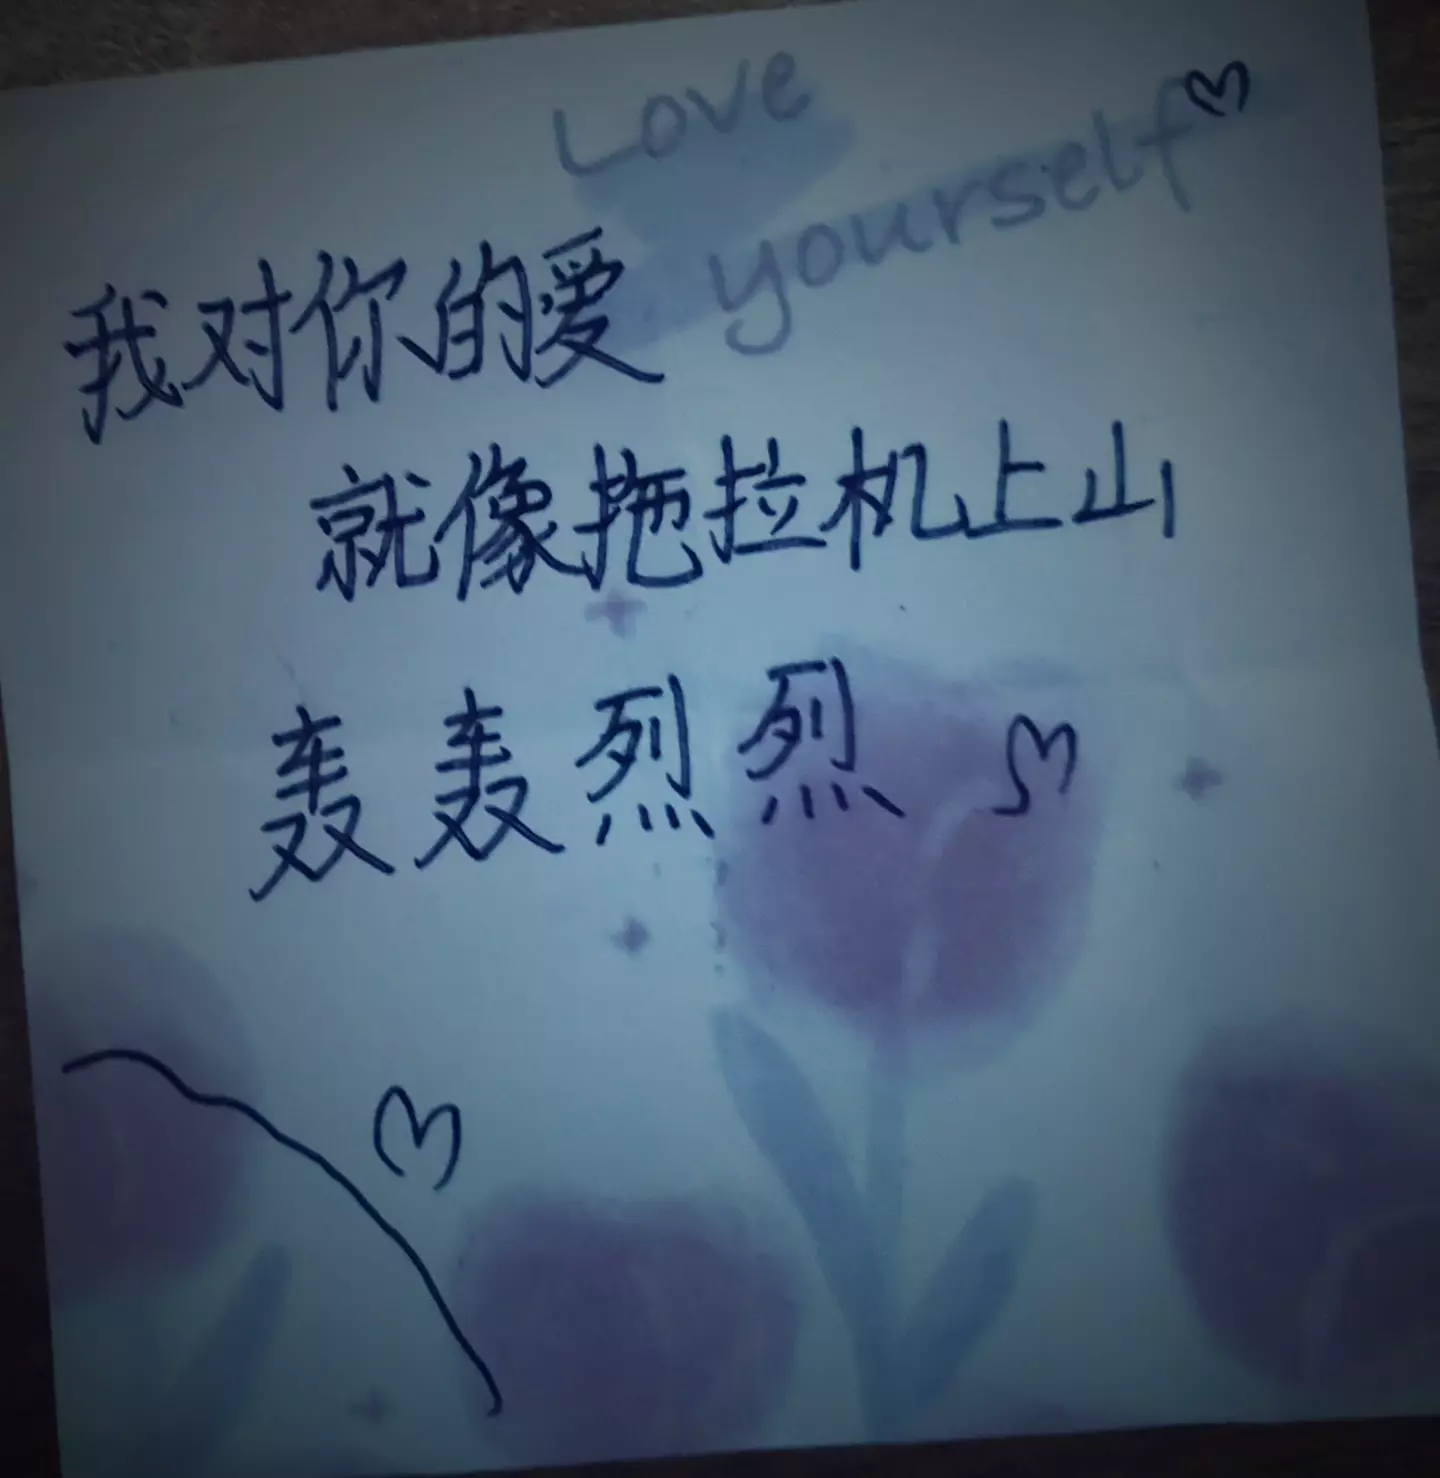 Love
yourself
我对你的爱
就像拖拉机上山
轰轰烈烈